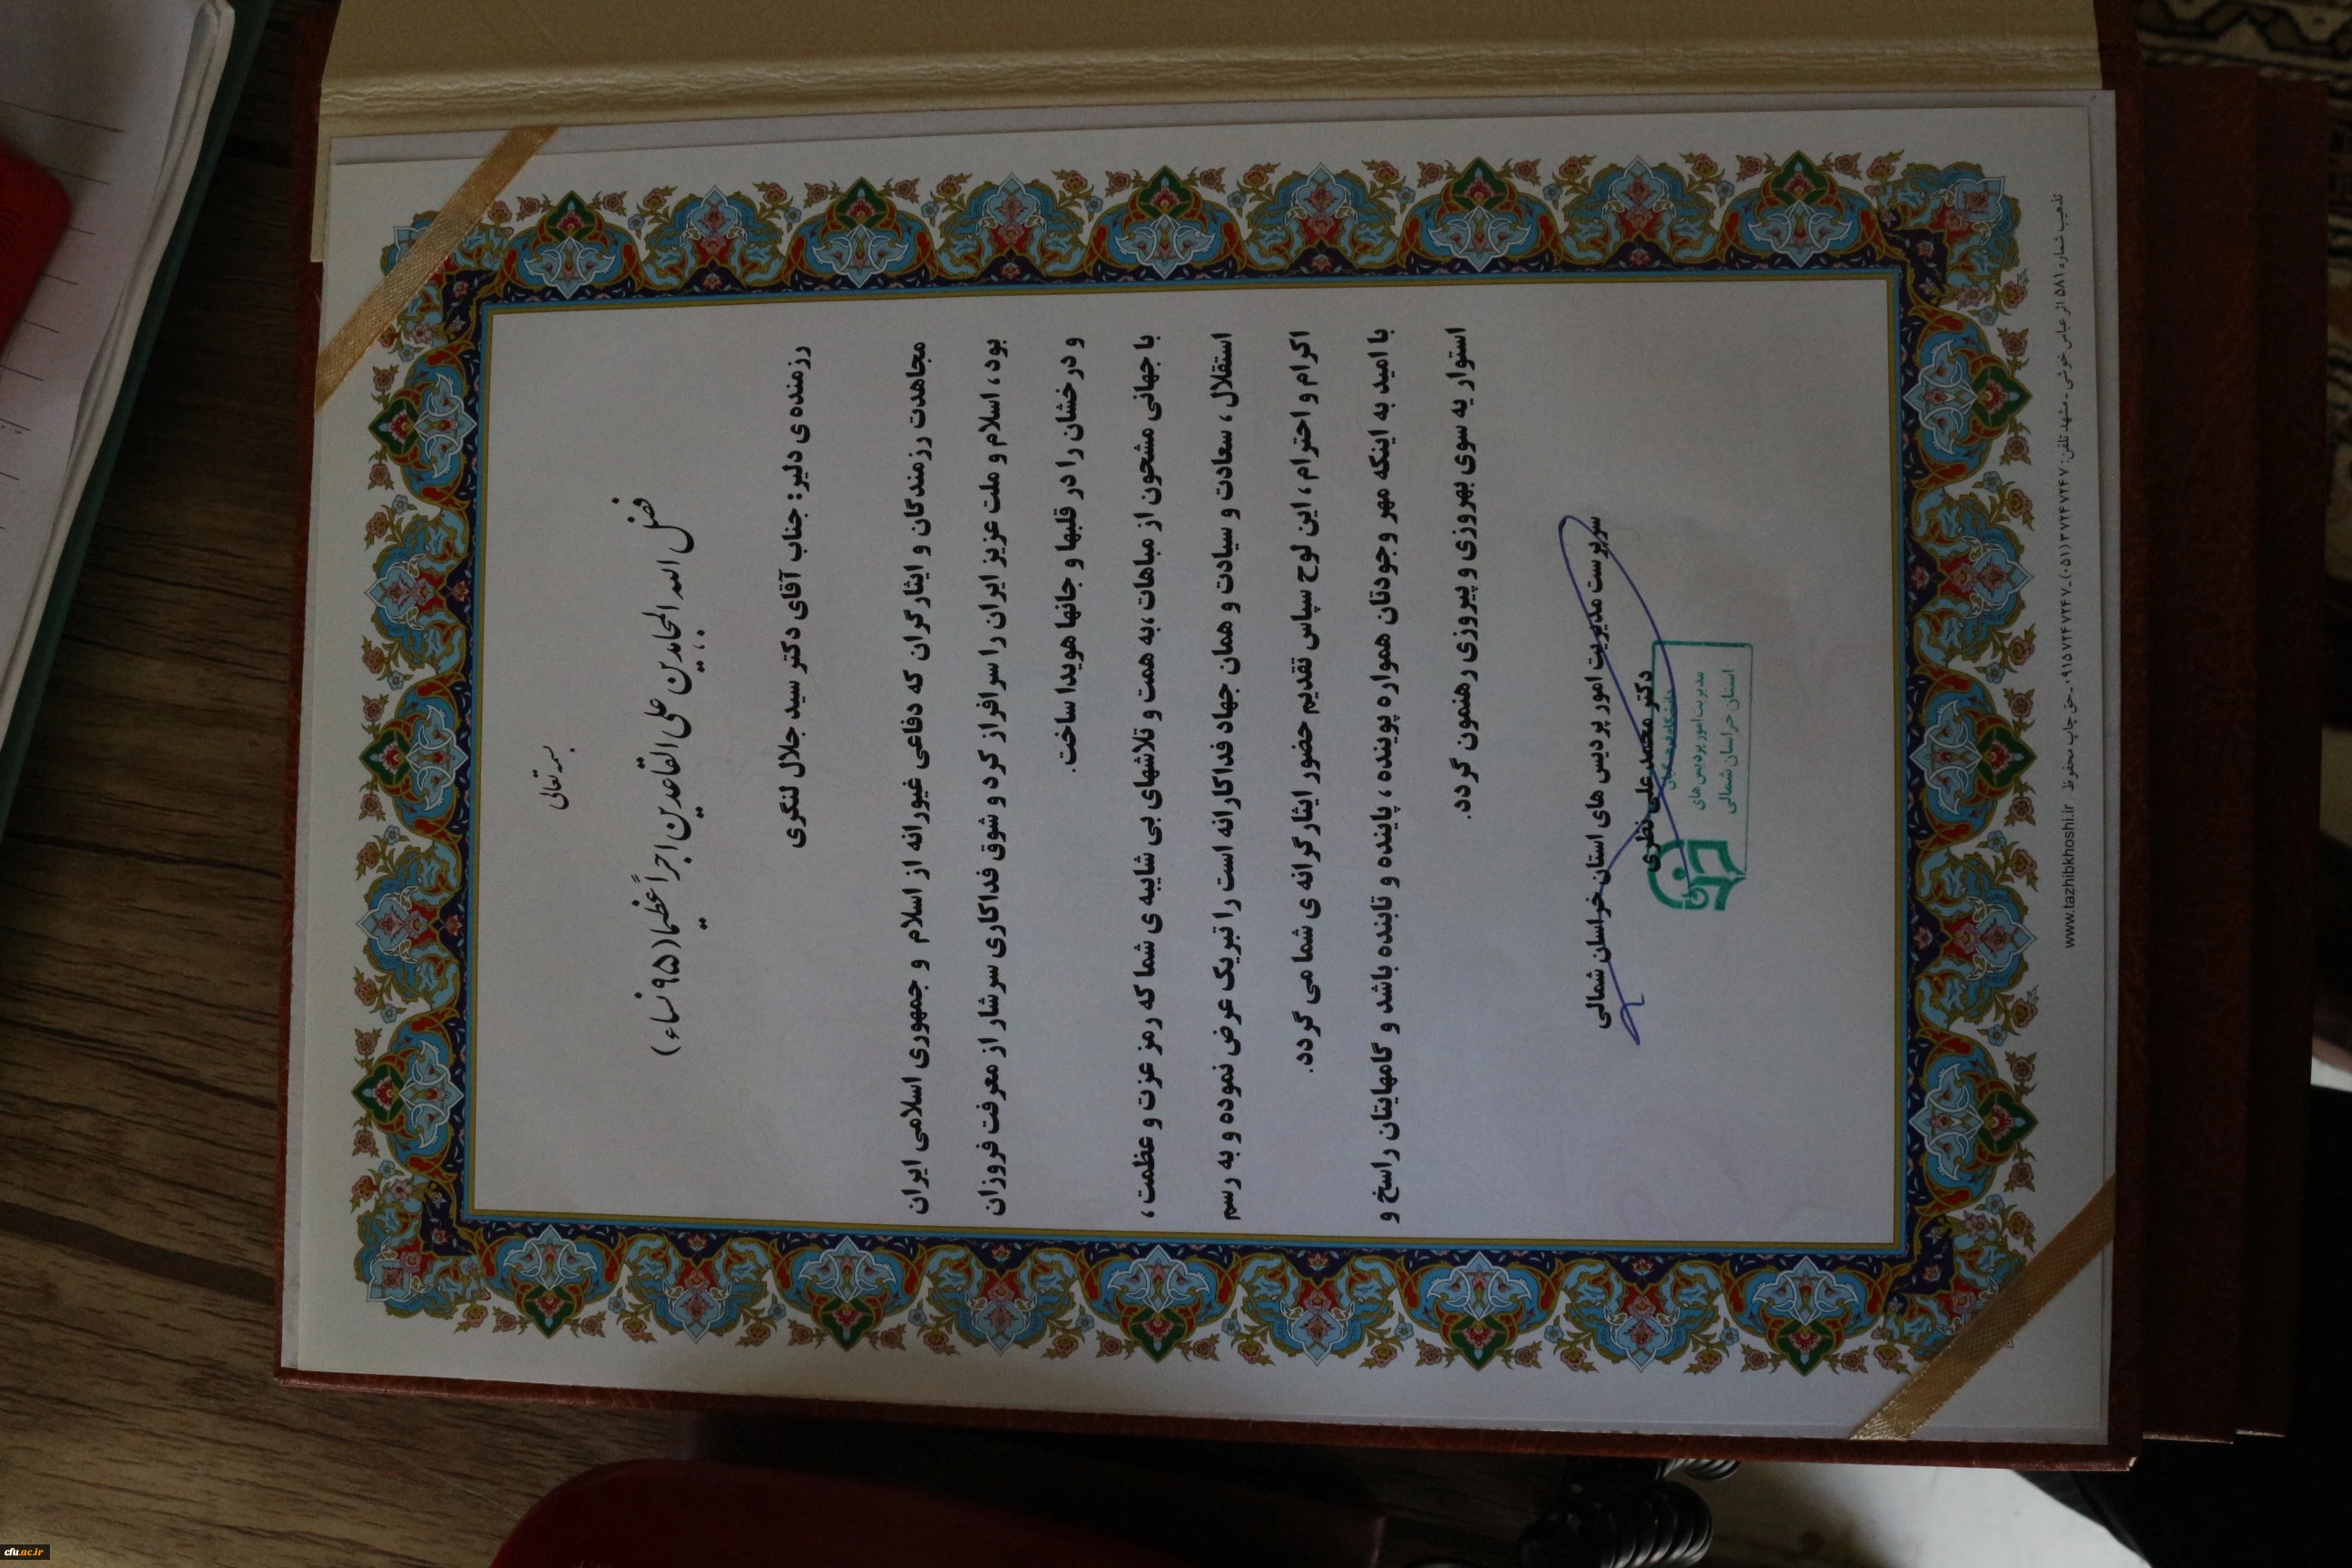 بسمه تعالی
فضل الله المجاهدین علی القاعدین اجراً عظیما (۹۵ نساء)
رزمنده ی دلیر: جناب آقای دکتر سید جلال لنگری
مجاهدت رزمندگان و ایثارگران که دفاعی غیورانه از اسلام و جمهوری اسلامی ایران
بود، اسلام و ملت عزیز ایران را سرافراز کرد و شوق فداکاری سرشار از معرفت فروزان
و درخشان را در قلبها و جانها هویدا ساخت.
با جهانی مشحون از مباهات، به همت و تلاشهای بی شایبه ی شما که رمز عزت و عظمت،
استقلال، سعادت و سیادت و همان جهاد فداکارانه است را تبریک عرض نموده و به رسم
اکرام و احترام، این لوح سپاس تقدیم حضور ایثارگرانه ی شما می گردد.
با امید به اینکه مهر وجودتان همواره پوینده، پاینده و تابنده باشد و گامهایتان راسخ و
استوار به سوی بهروزی و پیروزی رهنمون گردد.
سرپرست مدیریت امور پردیس های استان خراسان شمالی
دکتر محمدعلی نظری
دانشگاه فرهنگیان
مدیریت امور پردیس های
استان خراسان شمالی
تذهیب شماره ۵۸۱ اثر عباس خوشی - مشهد تلفن: ۳۷۲۴۷۲۴۷ (۰۵۱) - ۰۹۱۵۷۲۴۷۲۴۷ - حق چاپ محفوظ www.tazhibkhoshi.ir
cfu.ac.ir